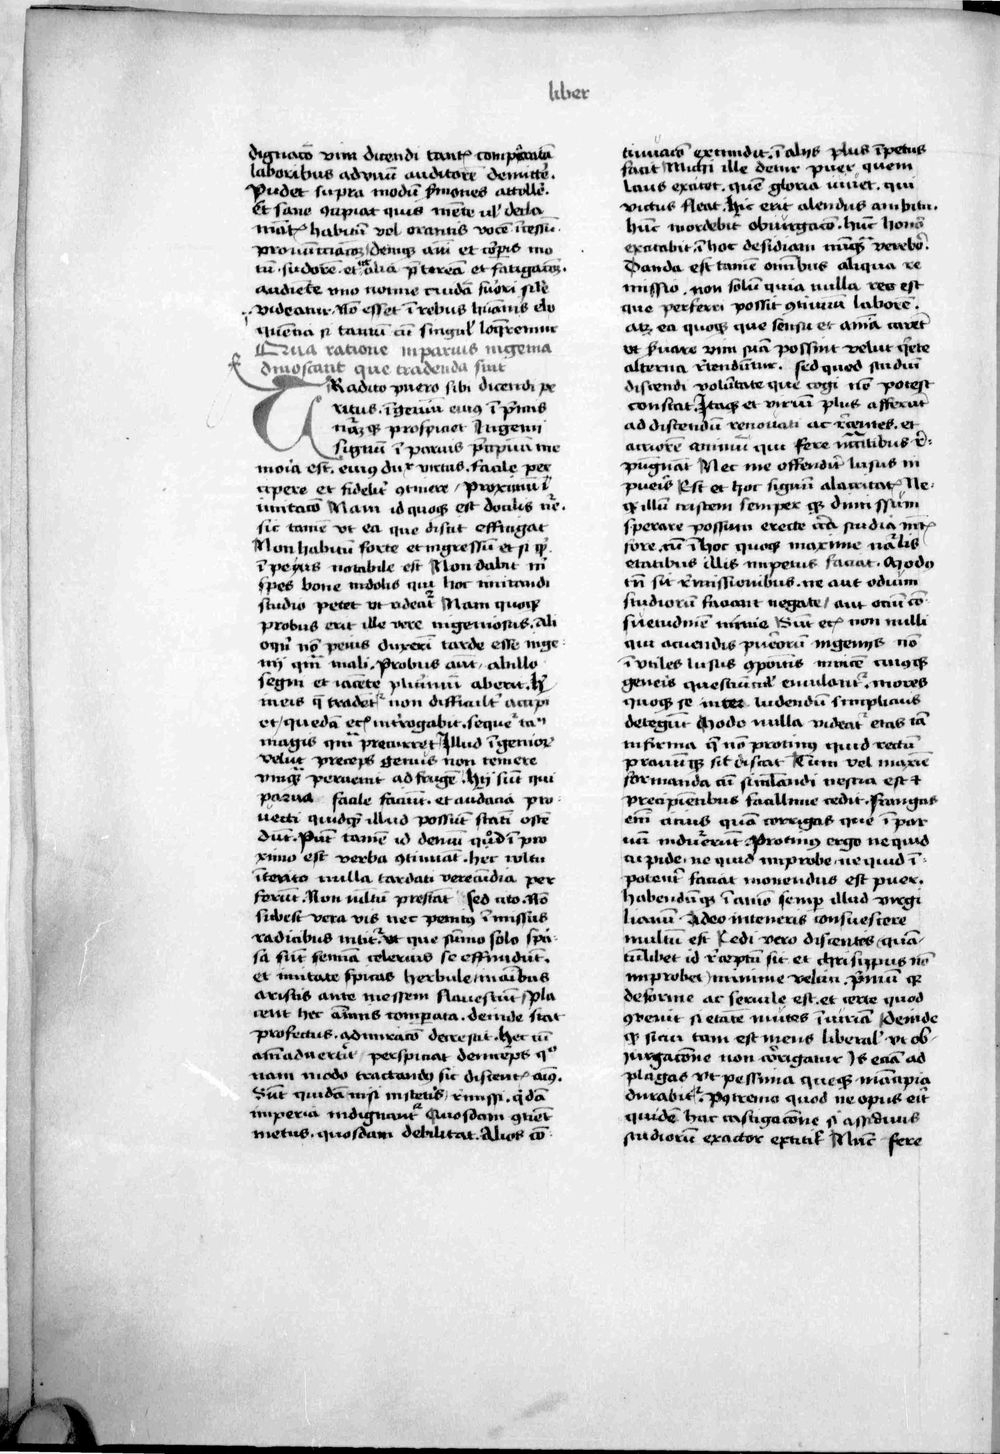 liber
dignacō vim dicendi tantꝭ comparatā
laboribus ad vnū auditorē demittē.
Pudet supra modū ẜmones attollē.
Et sane ꝯcipiat quis mēte ul' decla
mātꝭ habitū vel orantis vocē incessū.
pronūciacōꝫ deniqꝫ aīi et cōrpis mo
tū. sudorē. et alia p̄terea et fatigacōꝫ.
audiēte vno nōnne cuidā furori sil'e
videatur. Nō esset ī rebus hūanis elo
quētia si tantū cū singul' loq̄remur
Qua ratione in paruis ingenia
dinoscant que tradenda sint
TRadito puero sibi dicendi pe
ritus. īgeniū eiꝰ ī p̄mis
nāꝫ qꝫ prospiciet Ingenij
signū ī paruis p̄cipuū me
moīa est. eius duꝝ virtus. facile per
cipere et fidelit' ꝯtinere / Proximū ē
imitacō Nam id quoqꝫ est docilis nē.
sic tamē vt ea que discit effingat
Non habitū forte et ingressū et si qͥ.
ī peyus notabile est Non dabit mͥ
spes bone indolis qui hoc imitandi
studio petet vt rideat̉ Nam quoqꝫ
probus erit ille vere ingeniosus. Ali
oqn̄ nō peius duxerī tarde esse inge
nij qm̄ mali. Probus aūt / ab illo
segni et iacēte plurimū aberit. H'
meis q̄ tradet̉ non difficult' accipi
et / quedā etꝭ introgabit. sequet̉ tam̄
magis qm̄ precurret Illud īgenioꝝ
velut preceps genus non temere
vnqꝫ peruenit ad frugē. Hij sūt qui
parua facile faciūt. et audacia pro
uecti quidqꝫ illud possūt statī oste
dūt. Pn̄t tamē id demū quod ī pro
ximo est verba ꝯtinuāt. hec vultu
īterito nulla tardati verecūdia per
ferūt. Non multū prestāt sed cito. Nō
subest vera vis nec penitꝰ īmissis
radicibus nitit̉. vt que sūmo solo spar
sa sūt semīa celerius se effundūt.
et imitate spicas herbule / inanibus
aristis ante messem flauescūt / Pla
cent hec annis comparata. deinde stat
profectus. admiracō decrescit. Hec cū
animaduertit / perspiciat deinceps quo
nam modo tractandꝰ sit discentꝭ aīus.
Sūt quidā nisi institeris / remissi. qͥdā
imperia indignant̉ Quosdam ꝯtinet
metus. quosdam debilitat. Alios cō
tinuacō extundit. ī alijs plus īpetus
facit Michi ille detur puer quem
laus excitet. quē gloria iuuet. qui
victus fleat. hic erit alendus ambitu.
hūc mordebit obiurgacō. hūc honor
excitabit. ī hoc desidiam nūqꝫ verebor.
Danda est tamē omībus aliqua re
missio. non solū quia nulla res est
que perferre possit ꝯtinuū laborē.
atqꝫ ea quoqꝫ que sensu et aīma carēt
vt ẜuare vim suā possint velut q̄ete
alterna retendūtur. sed quod studiū
discendi volūtate que cogi nō potest
constat. Itaqꝫ et viriū plus afferūt
ad discendū renouati ac recentes. et
acriorē animū qui fere necessitatibus re
pugnat Nec me offendit lusus in
pueris Est et hoc signū alacritatꝭ Ne
qꝫ illū tristem semper qꝫ dimissum
sperare possum erecte circa studia mētꝭ
fore. cū ī hoc quoqꝫ maxime nātalis
etatibus illis impetus faciat. Modo
tn̄ sit remissionibus. ne aut odium
studiorū faciant negate / aut ociū cō
suetudinē nimie Sūt etꝭ non nulli
qui acuendis puerorū ingenijs nō
īvtiles lusus ꝯpositis inuicē cuiusqꝫ
generis questiūcul' emulant̉. mores
quoqꝫ se inter ludendū simplicius
detegūt Modo nulla videat̉ etas tā
infirma q̄ nō protinꝰ quid rectū
prauūqꝫ sit discat Tum vel maxīe
formanda cū simulandi nescia est et
precipientibus facillime cedit. Frangas
enī citius quā corrigas que ī par
uū induerūt. Protinus ergo ne quid
cupide. ne quid improbe. ne quid ī
potent' faciat monendus est puer.
habendūqꝫ ī aīo semp illud virgi
lianū Adeo in teneris consuescere
multū est Cedi vero discentes / quā
tūlibet id receptū sit et Chrisippus nō
improbet / minime velim. Primū qꝫ
deforme ac seruile est. et certe quod
ꝯuenit si etatē mutes īiuria Deinde
qꝫ sicui tam est mens illiberal' vt ob
iurgacōne non corrigatur Is eciā ad
plagas vt pessima queqꝫ mācipia
durabit̉. Postremo quod ne opus erit
quidē hac castigacōne si assiduus
studiorū exactor extitit̉ Nūc fere